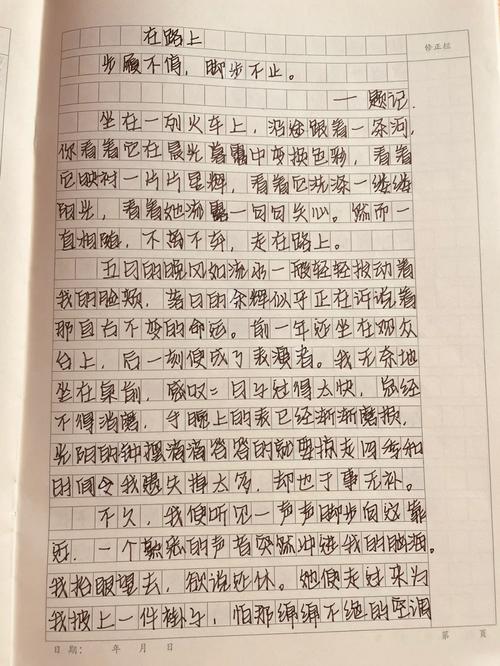 在路上
修正栏
步履不停，脚步不止。
——题记.
坐在一列火车上，沿途跟着一条河，
你看着它在晨光暮霭中变换色彩，看着
它映衬一片片星辉，看着它洗涤一缕缕
阳光，看着她流露一句句关心。踪而一
直相随，不离不弃，走在路上。
五日的晚风如流水一般轻轻拨动着
我的脸颊，落日的余辉似乎正在诉说着
那自古不变的命运。前一年还坐在观众
台上，后一刻便成了表演者。我无奈地
坐在桌前，感叹：日子过得太快，总经
不得消磨，手腕上的表已经渐渐磨损，
光阴的钟摆滴滴答答的就要掠走四季和
的间令我遗失掉太多，却也于事无补。
不久，我便听见一声声脚步向这靠
近，一个熟悉的声音突踪冲进我的脑海。
我抬眼望去，欲说还休。她便走过来为
我披上一件褂子，怕那绵绵不绝的空调
日期： 年 月 日
第 頁